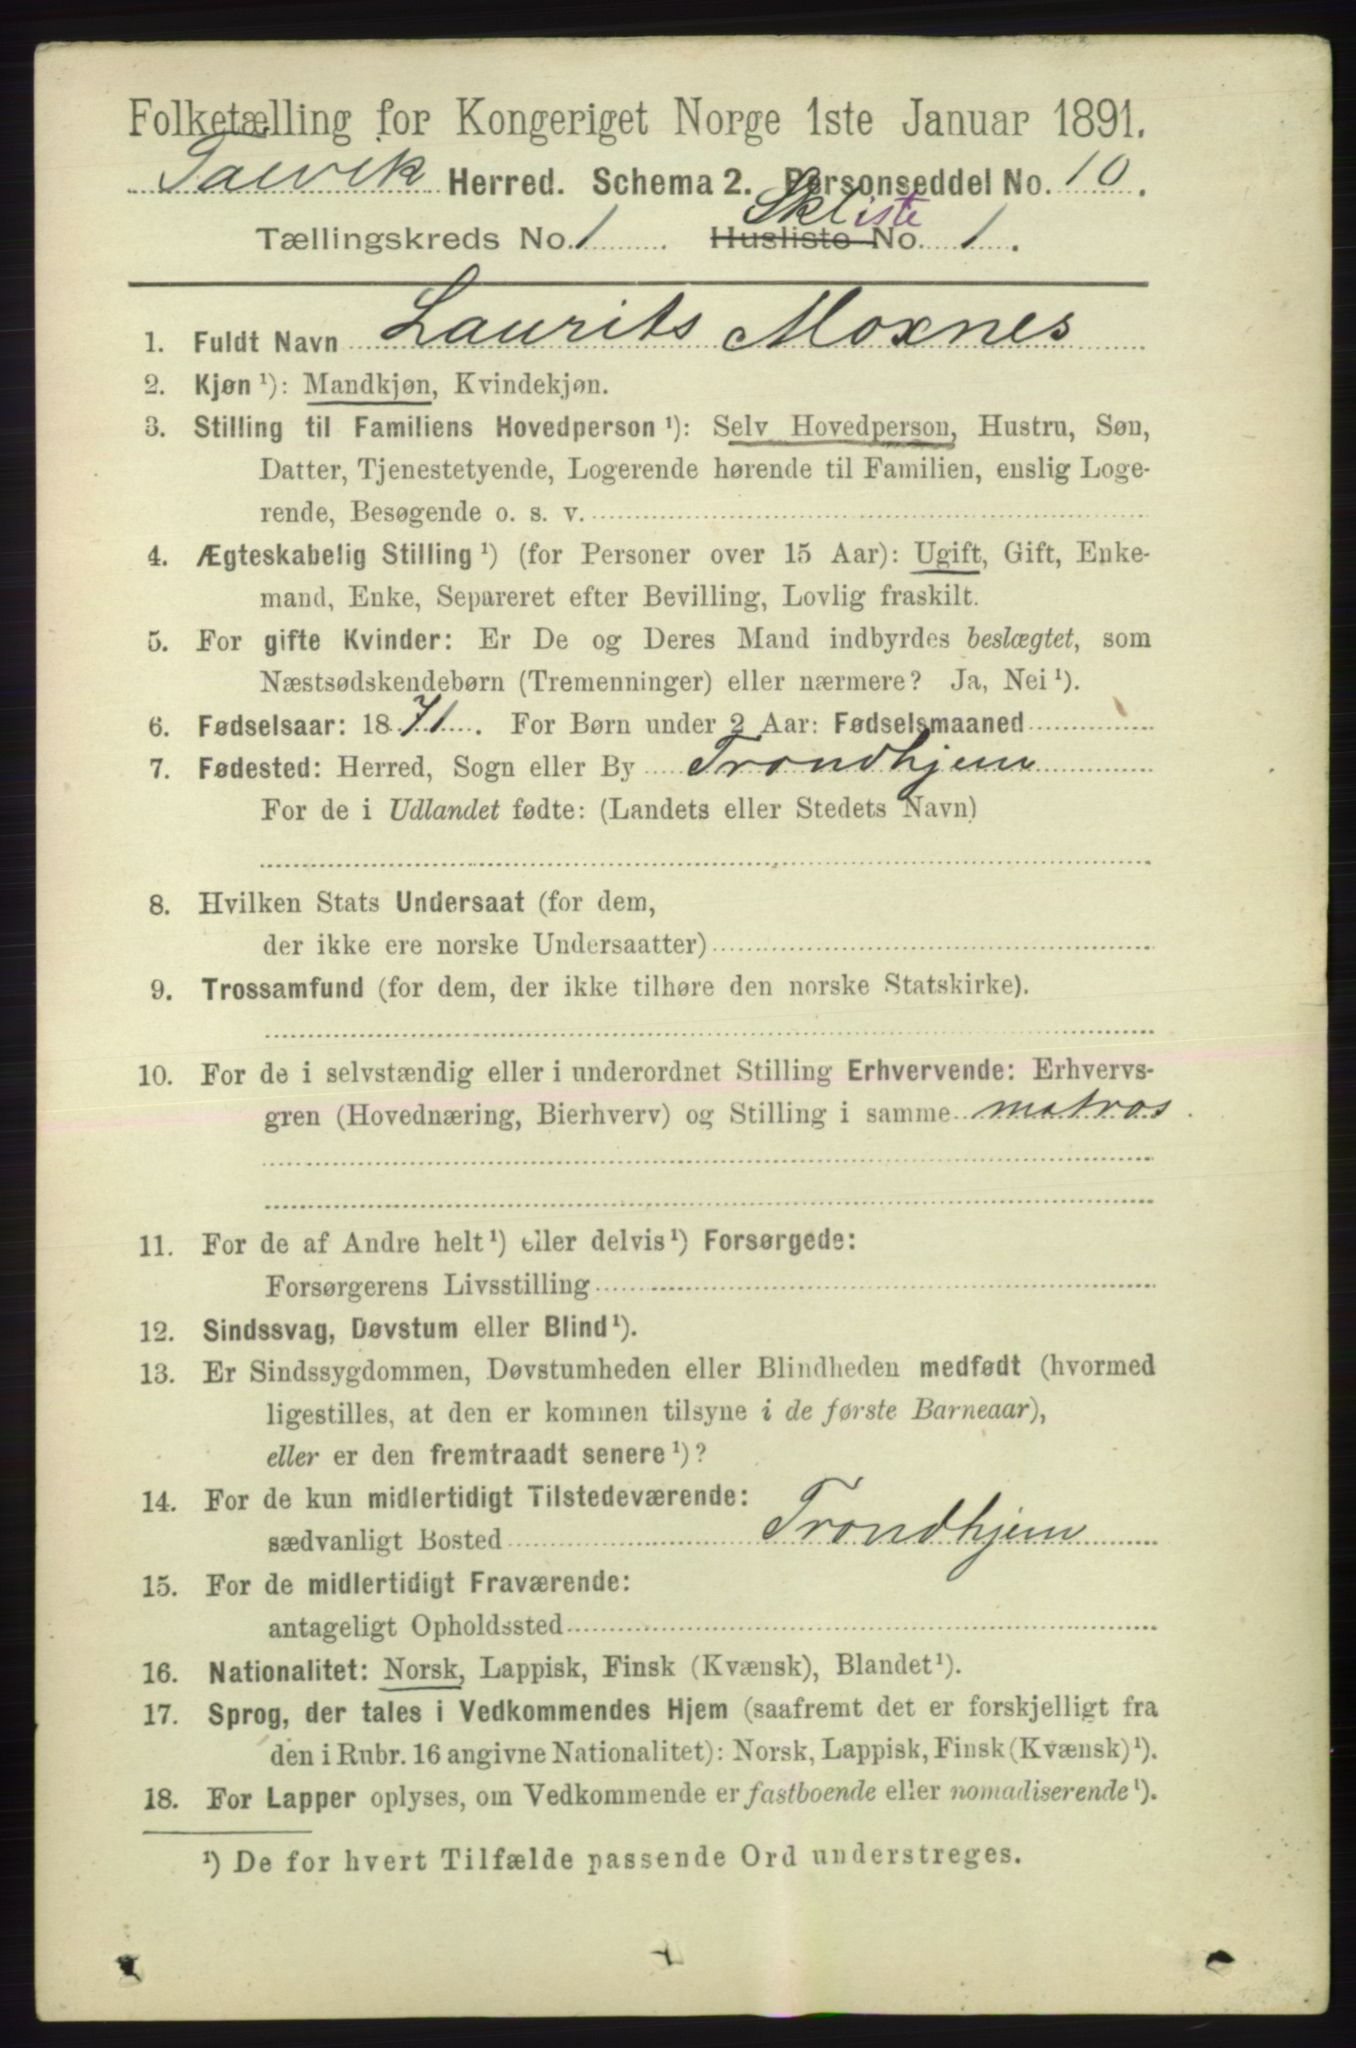 Folketælling for Kongeriget Norge 1ste Januar 1891.
Talvik Herred. Schema 2. Personseddel No. 10.
Tællingskreds No. 1 Husliste Skliste No. 1.
1. Fuldt Navn Laurits Moxnes
2. Kjøn ¹): Mandkjøn, Kvindekjøn.
3. Stilling til Familiens Hovedperson ¹): Selv Hovedperson, Hustru, Søn,
Datter, Tjenestetyende, Logerende hørende til Familien, enslig Loge-
rende, Besøgende o. s. v.
4. Ægteskabelig Stilling ¹) (for Personer over 15 Aar): Ugift, Gift, Enke-
mand, Enke, Separeret efter Bevilling, Lovlig fraskilt.
5. For gifte Kvinder: Er De og Deres Mand indbyrdes beslægtet, som
Næstsødskendebørn (Tremenninger) eller nærmere? Ja, Nei ¹).
6. Fødselsaar: 1871. For Børn under 2 Aar: Fødselsmaaned
7. Fødested: Herred, Sogn eller By Trondhjem
For de i Udlandet fødte: (Landets eller Stedets Navn)
8. Hvilken Stats Undersaat (for dem,
der ikke ere norske Undersaatter)
9. Trossamfund (for dem, der ikke tilhøre den norske Statskirke).
10. For de i selvstændig eller i underordnet Stilling Erhvervende: Erhvervs-
gren (Hovednæring, Bierhverv) og Stilling i samme matros.
11. For de af Andre helt ¹) eller delvis ¹) Forsørgede:
Forsørgerens Livsstilling
12. Sindssvag, Døvstum eller Blind ¹).
13. Er Sindssygdommen, Døvstumheden eller Blindheden medfødt (hvormed
ligestilles, at den er kommen tilsyne i de første Barneaar),
eller er den fremtraadt senere ¹)?
14. For de kun midlertidigt Tilstedeværende:
sædvanligt Bosted Trondhjem
15. For de midlertidigt Fraværende:
antageligt Opholdssted
16. Nationalitet: Norsk, Lappisk, Finsk (Kvænsk), Blandet ¹).
17. Sprog, der tales i Vedkommendes Hjem (saafremt det er forskjelligt fra
den i Rubr. 16 angivne Nationalitet): Norsk, Lappisk, Finsk (Kvænsk) ¹).
18. For Lapper oplyses, om Vedkommende er fastboende eller nomadiserende ¹).
¹) De for hvert Tilfælde passende Ord understreges.